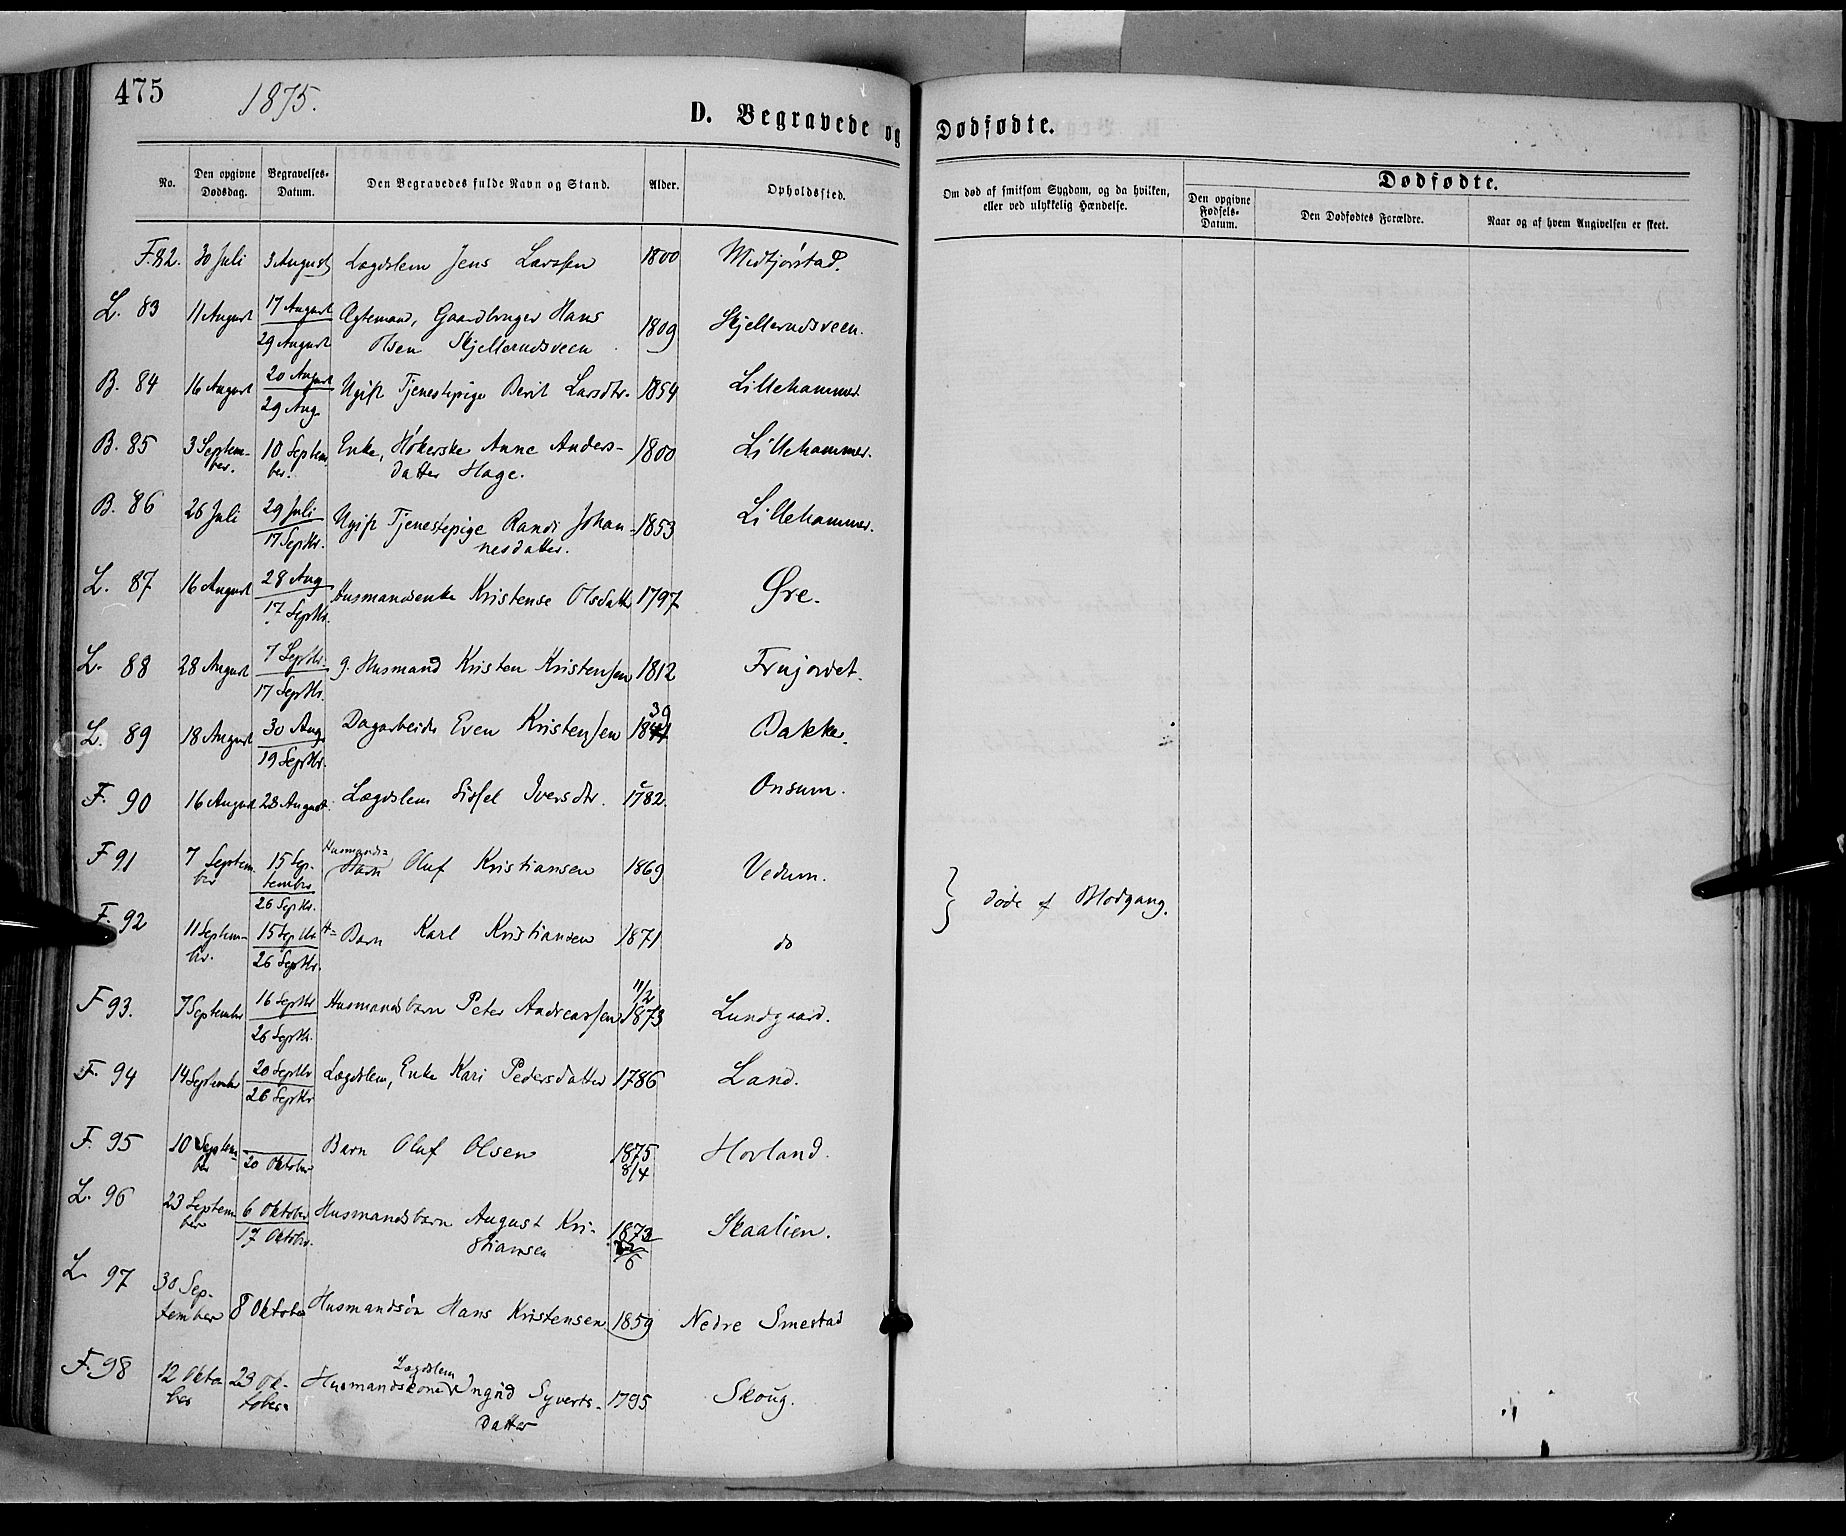 475
1875.
D. Begravede og Dødfødte.
No.
Den opgivne Dødsdag.
Begravelses-Datum.
Den Begravedes fulde Navn og Stand.
Alder.
Opholdssted.
Om død af smitsom Sygdom, og da hvilken, eller ved ulykkelig Hændelse.
Dødfødte.
Den opgivne Fødsels-Datum.
Den Dødfødtes Forældre.
Naar og af hvem Angivelsen er skeet.
F. 82. 30 Juli 3 August Lægdslem Jens Larssen 1800 Midtjørstad.
L. 83 11 August 17 August 29 August Ægtemand, Gaardbruger Hans Olsen Skjellerudsveen 1809 Skjellerudsveen.
B. 84 16 August 20 August 29 Aug. Ugift Tjenestepige Berit Larsdtr. 1854 Lillehammer
B. 85 3 September. 10 September. Enke, Høkerske Anne Anders-
datter Hage. 1800 Lillehammer.
B. 86 26 Juli 29 Juli 17 Septbr. Ugift Tjenestepige Randi Johan
nesdatter. 1853 Lillehammer.
L. 87 16 August 28 Aug 17 Septbr. Husmandsenke Kristense Olsdatter 1797 Øre.
L. 88 28 August 7 Septbr. 17 Septbr. g. Husmand Kristen Kristensen 1812 Frujordet.
L. 89 18 August 30 Aug. 19 Septbr. Dagarbeider Even Kristensen 18 30 Bakke.
F. 90 16 August 28 August. Lægdslem Sissel Iversdtr. 1782. Onsum.
F 91 7 September 15 September 26 Septbr. Husmands=
Barn Oluf Kristiansen 1869 Vedum.
} døde af Blodgang.
F. 92 11 Septembr. 15 Septbr 26 Septbr. H= Barn Karl Kristiansen 1871 do
F 93. 7 September 16 Septbr 26 Septbr. Husmandsbarn Peter Andreassen 11/2 1873 Lundgaard.
F. 94 14 September 20 Septbr 26 Septbr Lægdslem, Enke Kari Pedersdatter 1786 Land.
F. 95 10 September 20 Oktober Barn Oluf Olsen 1875 8/4 Hovland.
L. 96 23 September 6 Oktober 17 Oktober. Husmandsbarn August Kri-
stiansen 1873 Skaalien.
L. 97 30 September 8 Oktober Husmandsøn Hans Kristensen 1859 Nedre Smestad
F. 98 12 Oktober 23 Oktober= Husmandskone Lægdslem Ingrid Syverts-
datter 1795 Skoug.